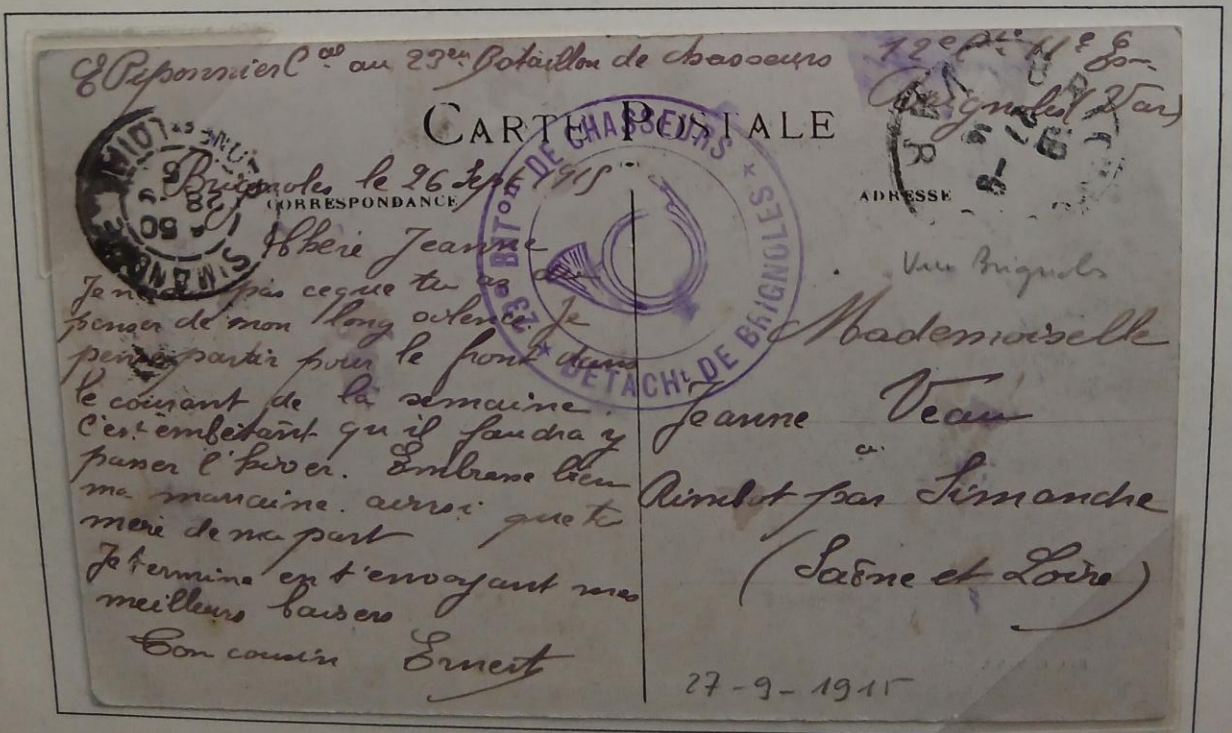 E Peponnier C^al au 23^em Bataillon de chasseurs
12^e C^ie 11^e
Brignoles (Var)
CARTE POSTALE
CORRESPONDANCE
ADRESSE
23^e B^ATON DE CHASSEURS * DETACH^t DE BRIGNOLES *
SIMANDRE
SAONE-&-LOIRE
28
Brignoles le 26 Sept 1915
Chère Jeanne
Je ne pas ce que tu as du
penser de mon long silence. Je
pense partir pour le front dans
le courant de la semaine.
C'est embêtant qu'il faudra y
passer l'hiver. Embrasse bien
ma marraine ainsi que ta
mère de ma part
Je termine en t'envoyant mes
meilleurs baisers
Ton cousin Ernest
Vue Brignoles
Mademoiselle
Jeanne Veau
à
Rimbot par Simandre
(Saône et Loire)
27-9-1915